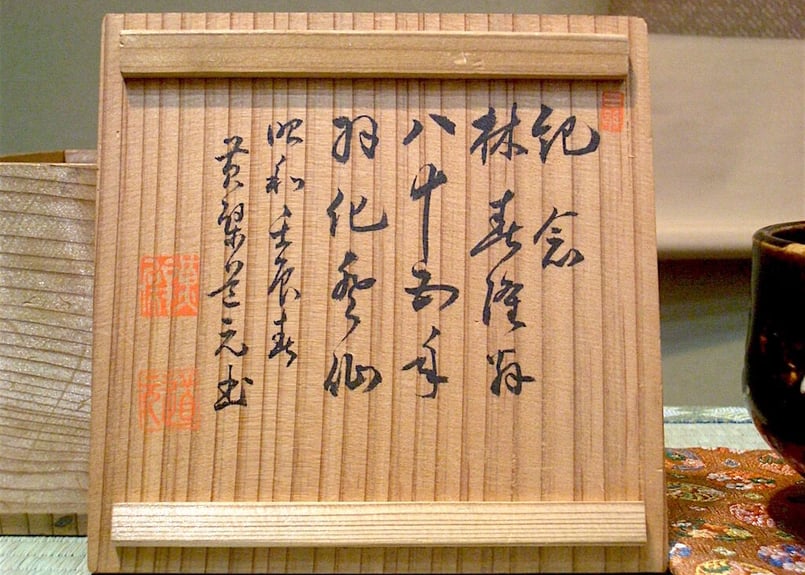 紀念
林春隆
八十五年
羽化登仙
昭和壬辰春
黄檗道元書